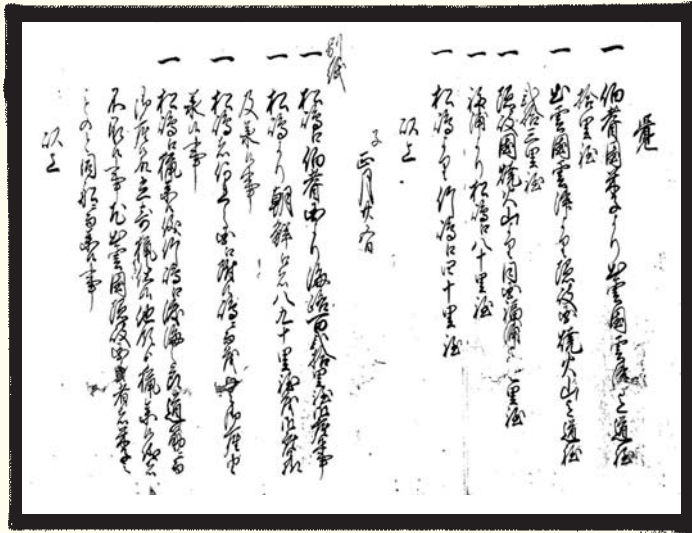 覺
一 伯耆國米子より出雲國雲津迄道程
拾里程
一 出雲國雲津より隠岐國焼火山迄道程
弐拾三里程
一 隠岐國焼火山より同國福浦迄七里程
一 福浦より松嶋江八十里程
一 松嶋より竹嶋江四十里程
以上
子 正月廿五日
別紙
一 松嶋江伯耆國より海路百弐拾里程御座候事
一 松嶋より朝鮮江は八九十里程も御座候様
及承候事
一 松嶋は何れの國江附候嶋ニても無御座候由
承候事
一 松嶋江猟参候儀竹嶋江渡海の節道筋ニて
御座候故立寄猟仕候他領より猟参候儀は
不承候事尤出雲國隠岐國の者は米子の
ものと同船ニて参候事
以上